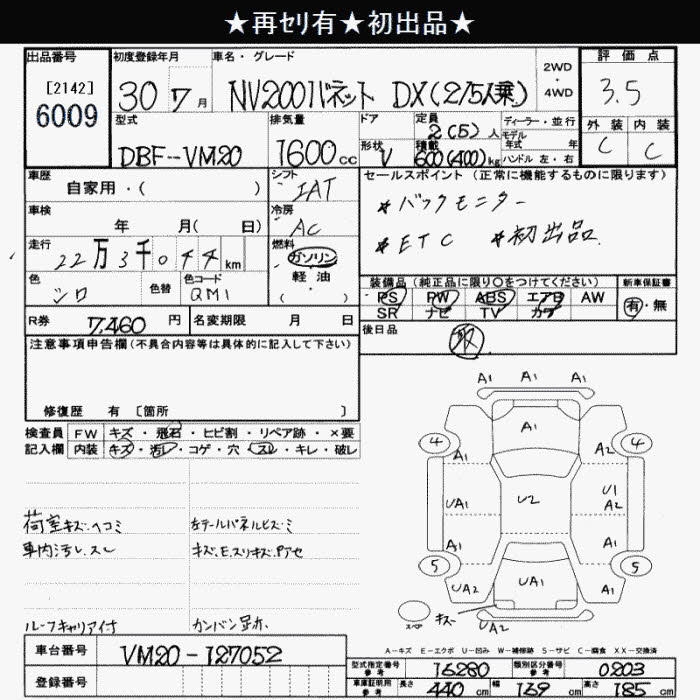 ★再セリ有★初出品★
出品番号 初度登録年月 車名・グレード 2WD・4WD 評価点
[2142]
6009 30 7月 NV200バネット DX(2/5人乗) 3.5
型式 排気量 ドア 定員 2(5)人 ディーラー・並行 外装 内装
DBF-VM20 1600cc 形状 V 積載 600(400)kg モデル年式 年 ハンドル 左・右 C C
車歴 シフト セールスポイント (正常に機能するものに限ります)
自家用・( ) IAT *バックモニター
車検 冷房
年 月( 日) AC *ETC *初出品
走行 燃料
22万3千044km ガソリン
色 色替 色コード 軽・油 装備品 (純正品に限り○をつけてください) 新車保証書
シロ QM1 ( ) PS PW ABS エアB AW 有・無
R券 7,460円 名変期限 月 日 SR ナビ TV カワ
注意事項申告欄(不具合内容等は具体的に記入して下さい) 後日品 取
修復歴 有 [箇所 ]
検査員 FW キズ・飛石・ヒビ割・リペア跡・×要
記入欄 内装 キズ・汚レ・コゲ・穴・スレ・キレ・破レ
A1 A1 A1
A1
4 4
A1 A2
UA1 U2 U1
A2
A1 A1
5 5
UA2 UA1 A1
スペア キズ UA2
荷室キズ・ヘコミ
車内汚レ、スレ
ルーフキャリア付
A-キズ E-エクボ U-凹み W-補修跡 S-サビ C-腐食 XX-交換済
車台番号 VM20-127052 型式指定番号 参考 16280 類別区分番号 参考 0203
登録番号 車庫証明用 参考 長さ 440cm 幅 169cm 高さ 185cm